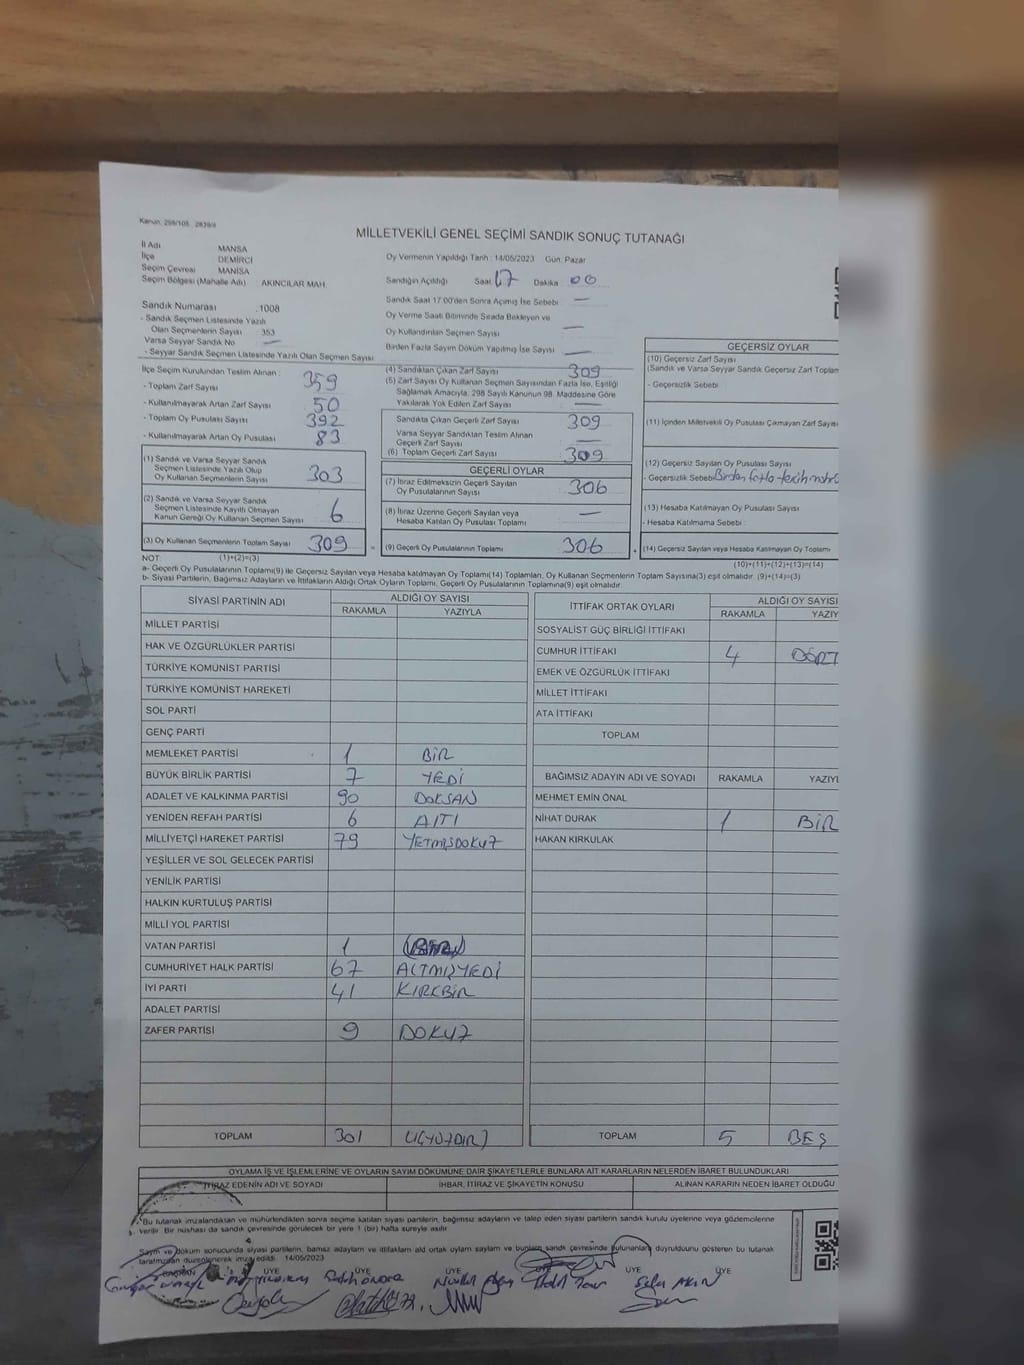 Kanun: 298/105 2839/4
MİLLETVEKİLİ GENEL SEÇİMİ SANDIK SONUÇ TUTANAĞI
İl Adı MANİSA
İlçe DEMİRCİ
Seçim Çevresi MANİSA
Seçim Bölgesi (Mahalle Adı) AKINCILAR MAH.
Sandık Numarası : 1008
- Sandık Seçmen Listesinde Yazılı
Olan Seçmenlerin Sayısı : 353
Varsa Seyyar Sandık No
- Seyyar Sandık Seçmen Listesinde Yazılı Olan Seçmen Sayısı
Oy Vermenin Yapıldığı Tarih : 14/05/2023 Gün: Pazar
Sandığın Açıldığı Saat 17 Dakika 00
Sandık Saat 17.00'den Sonra Açılmış İse Sebebi : —
Oy Verme Saati Bitiminde Sırada Bekleyen ve
Oy Kullandırılan Seçmen Sayısı —
Birden Fazla Sayım Döküm Yapılmış İse Sayısı —
İlçe Seçim Kurulundan Teslim Alınan :
- Toplam Zarf Sayısı 359
- Kullanılmayarak Artan Zarf Sayısı 50
- Toplam Oy Pusulası Sayısı 392
- Kullanılmayarak Artan Oy Pusulası 83
(1) Sandık ve Varsa Seyyar Sandık
Seçmen Listesinde Yazılı Olup
Oy Kullanan Seçmenlerin Sayısı 303
(2) Sandık ve Varsa Seyyar Sandık
Seçmen Listesinde Kayıtlı Olmayan
Kanun Gereği Oy Kullanan Seçmen Sayısı 6
(3) Oy Kullanan Seçmenlerin Toplam Sayısı 309
(4) Sandıktan Çıkan Zarf Sayısı 309
(5) Zarf Sayısı Oy Kullanan Seçmen Sayısından Fazla İse, Eşitliği
Sağlamak Amacıyla, 298 Sayılı Kanunun 98. Maddesine Göre
Yakılarak Yok Edilen Zarf Sayısı —
Sandıkta Çıkan Geçerli Zarf Sayısı 309
Varsa Seyyar Sandıktan Teslim Alınan
Geçerli Zarf Sayısı —
(6) Toplam Geçerli Zarf Sayısı 309
GEÇERLİ OYLAR
(7) İtiraz Edilmeksizin Geçerli Sayılan
Oy Pusulalarının Sayısı 306
(8) İtiraz Üzerine Geçerli Sayılan veya
Hesaba Katılan Oy Pusulası Toplamı —
(9) Geçerli Oy Pusulalarının Toplamı 306
GEÇERSİZ OYLAR
(10) Geçersiz Zarf Sayısı
(Sandık ve Varsa Seyyar Sandık Geçersiz Zarf Toplam
- Geçersizlik Sebebi
(11) İçinden Milletvekili Oy Pusulası Çıkmayan Zarf Sayıs
(12) Geçersiz Sayılan Oy Pusulası Sayısı
- Geçersizlik Sebebi Birden fazla tercih
(13) Hesaba Katılmayan Oy Pusulası Sayısı
- Hesaba Katılmama Sebebi :
(14) Geçersiz Sayılan veya Hesaba Katılmayan Oy Toplamı
NOT: (1)+(2)=(3) (10)+(11)+(12)+(13)=(14)
a- Geçerli Oy Pusulalarının Toplamı(9) ile Geçersiz Sayılan veya Hesaba katılmayan Oy Toplamı(14) Toplamları, Oy Kullanan Seçmenlerin Toplam Sayısına(3) eşit olmalıdır. (9)+(14)=(3)
b- Siyasi Partilerin, Bağımsız Adayların ve İttifakların Aldığı Ortak Oyların Toplamı, Geçerli Oy Pusulalarının Toplamına(9) eşit olmalıdır.
SİYASİ PARTİNİN ADI ALDIĞI OY SAYISI
RAKAMLA YAZIYLA
MİLLET PARTİSİ
HAK VE ÖZGÜRLÜKLER PARTİSİ
TÜRKİYE KOMÜNİST PARTİSİ
TÜRKİYE KOMÜNİST HAREKETİ
SOL PARTİ
GENÇ PARTİ
MEMLEKET PARTİSİ 1 BİR
BÜYÜK BİRLİK PARTİSİ 7 YEDİ
ADALET VE KALKINMA PARTİSİ 90 DOKSAN
YENİDEN REFAH PARTİSİ 6 ALTI
MİLLİYETÇİ HAREKET PARTİSİ 79 YETMİŞDOKUZ
YEŞİLLER VE SOL GELECEK PARTİSİ
YENİLİK PARTİSİ
HALKIN KURTULUŞ PARTİSİ
MİLLİ YOL PARTİSİ
VATAN PARTİSİ 1
CUMHURİYET HALK PARTİSİ 67 ALTMIŞYEDİ
İYİ PARTİ 41 KIRKBİR
ADALET PARTİSİ
ZAFER PARTİSİ 9 DOKUZ
TOPLAM 301
İTTİFAK ORTAK OYLARI ALDIĞI OY SAYISI
RAKAMLA YAZIY
SOSYALİST GÜÇ BİRLİĞİ İTTİFAKI
CUMHUR İTTİFAKI 4 DÖRT
EMEK VE ÖZGÜRLÜK İTTİFAKI
MİLLET İTTİFAKI
ATA İTTİFAKI
TOPLAM
BAĞIMSIZ ADAYIN ADI VE SOYADI RAKAMLA YAZIYL
MEHMET EMİN ÖNAL
NİHAT DURAK 1 BİR
HAKAN KIRKULAK
TOPLAM 5 BEŞ
OYLAMA İŞ VE İŞLEMLERİNE VE OYLARIN SAYIM DÖKÜMÜNE DAİR ŞİKAYETLERLE BUNLARA AİT KARARLARIN NELERDEN İBARET BULUNDUKLARI
İTİRAZ EDENİN ADI VE SOYADI İHBAR, İTİRAZ VE ŞİKAYETİN KONUSU ALINAN KARARIN NEDEN İBARET OLDUĞU
Bu tutanak imzalandıktan ve mühürlendikten sonra seçime katılan siyasi partilerin, bağımsız adayların ve talep eden siyasi partilerin sandık kurulu üyelerine veya gözlemcilerine
verilir. Bir nüshası da sandık çevresinde görülecek bir yere 1 (bir) hafta süreyle asılır.
Sayım ve döküm sonucunda siyasi partilerin, bağımsız adayların ve ittifakların aldığı ortak oyların sayıları ve bunların sandık çevresinde bulunanlara duyurulduğunu gösteren bu tutanak
tarafımızdan düzenlenerek imza edildi. 14/05/2023
BAŞKAN ÜYE ÜYE ÜYE ÜYE ÜYE